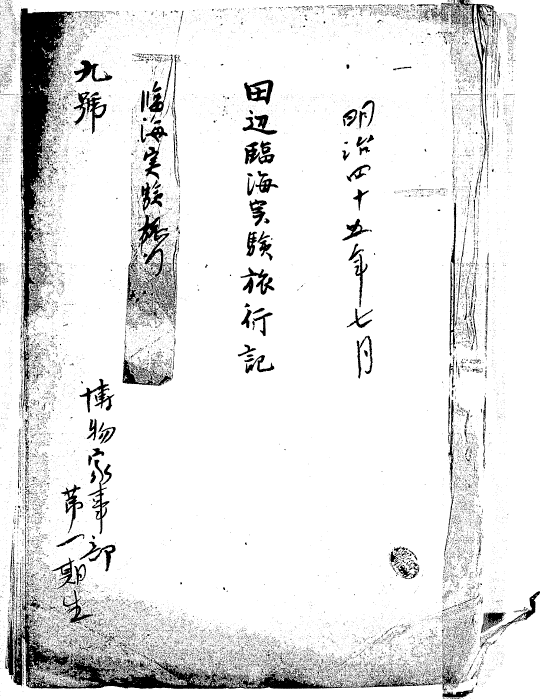 明治四十五年七月
田辺臨海実験旅行記
臨海実験旅行
九號
博物家事部
第一期生